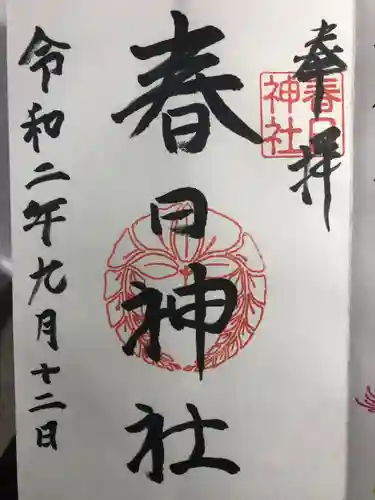 奉拝
春日神社
春日神社
令和二年九月十二日